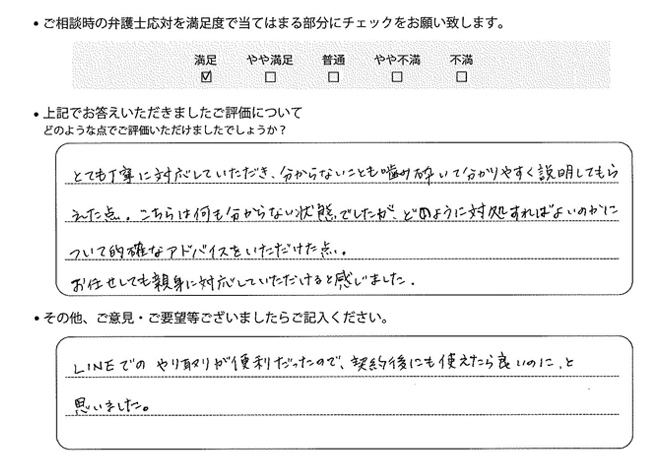 • ご相談時の弁護士応対を満足度で当てはまる部分にチェックをお願い致します。
満足 やや満足 普通 やや不満 不満
☑ ☐ ☐ ☐ ☐
• 上記でお答えいただきましたご評価について
どのような点でご評価いただけましたでしょうか？
とても丁寧に対応していただき、分からないことも噛み砕いて分かりやすく説明してもら
えた点。こちらは何も分からない状態でしたが、どのように対処すればよいのかに
ついて的確なアドバイスをいただけた点。
お任せしても親身に対応していただけると感じました。
• その他、ご意見・ご要望等ございましたらご記入ください。
LINEでのやり取りが便利だったので、契約後にも使えたら良いのに、と
思いました。